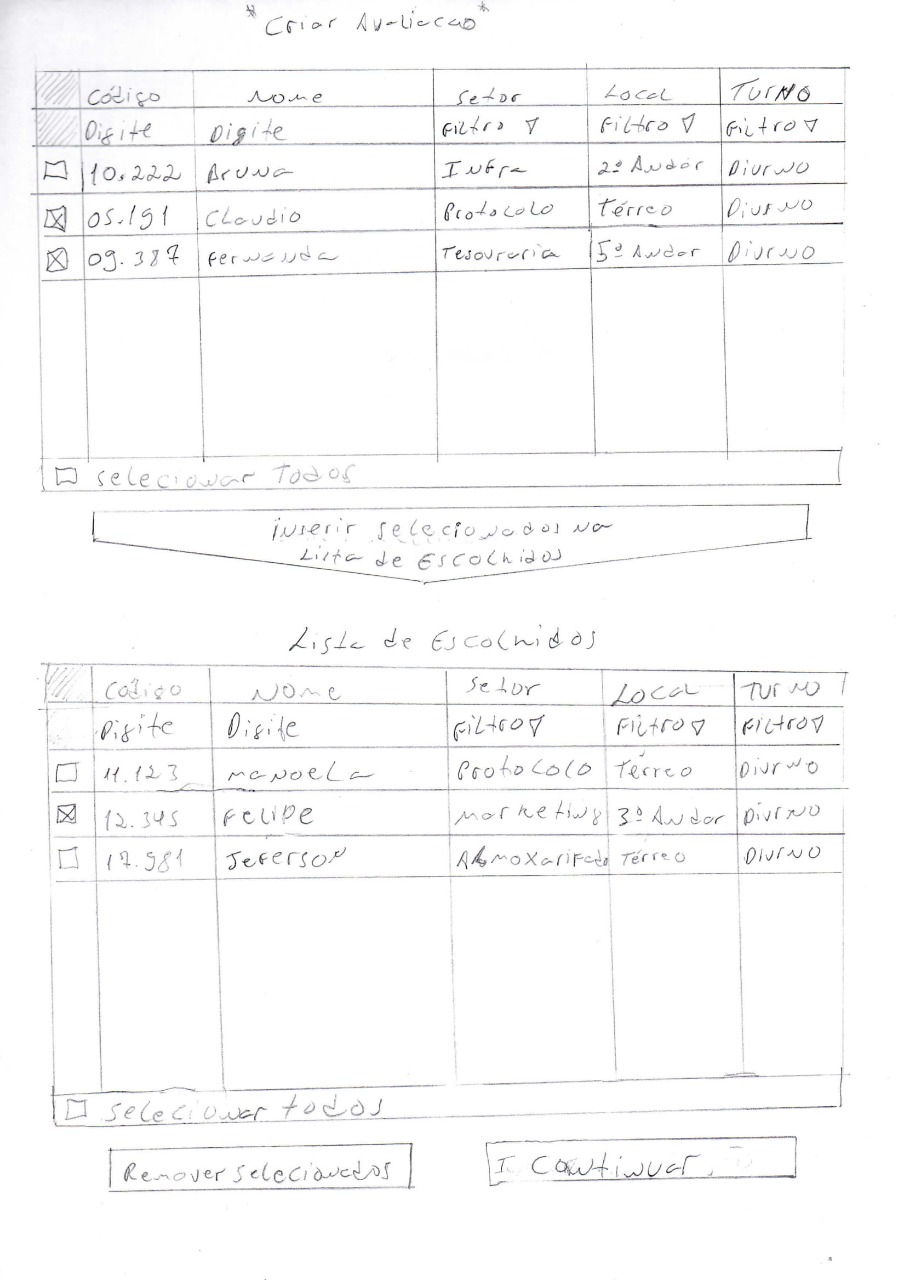 *Criar Avaliacao*
Código Nome Setor Local TURNO
Digite Digite Filtro ▽ Filtro ▽ Filtro ▽
10.222 Bruna Infra 2º Andar Diurno
05.191 Claudio Protocolo Térreo Diurno
09.387 Fernanda Tesouraria 5º Andar Diurno
selecionar Todos
inserir selecionados na
Lista de Escolhidos
Lista de Escolhidos
Código Nome Setor Local TURNO
Digite Digite Filtro ▽ Filtro ▽ Filtro ▽
11.123 Manoela Protocolo Térreo Diurno
12.345 Felipe Marketing 3º Andar Diurno
17.981 Jeferson Almoxarifado Térreo Diurno
selecionar todos
Remover selecionados
Continuar